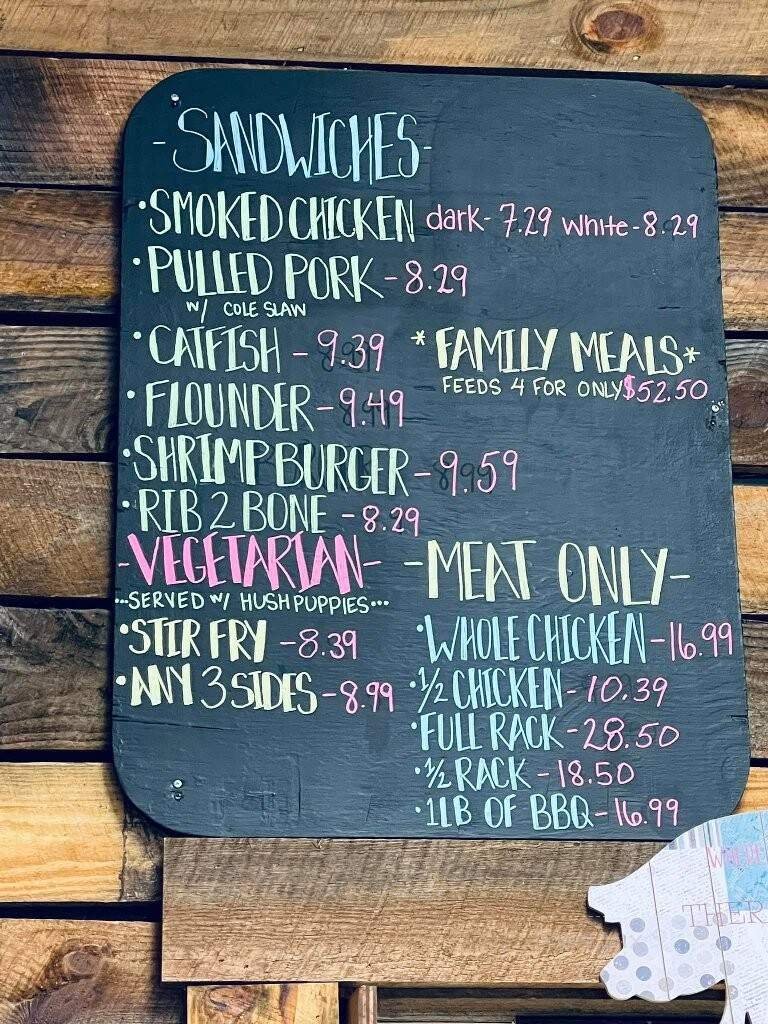 -SANDWICHES-
•SMOKED CHICKEN dark- 7.29 white-8.29
•PULLED PORK-8.29
W/ COLE SLAW
•CATFISH - 9.39
•FLOUNDER-9.49
•SHRIMP BURGER-9.59
•RIB 2 BONE -8.29
*FAMILY MEALS*
FEEDS 4 FOR ONLY $52.50
-VEGETARIAN-
...SERVED W/ HUSHPUPPIES...
•STIR FRY -8.39
•ANY 3 SIDES-8.99
-MEAT ONLY-
•WHOLE CHICKEN-16.99
•1/2 CHICKEN-10.39
•FULL RACK-28.50
•1/2 RACK-18.50
•1LB OF BBQ-16.99